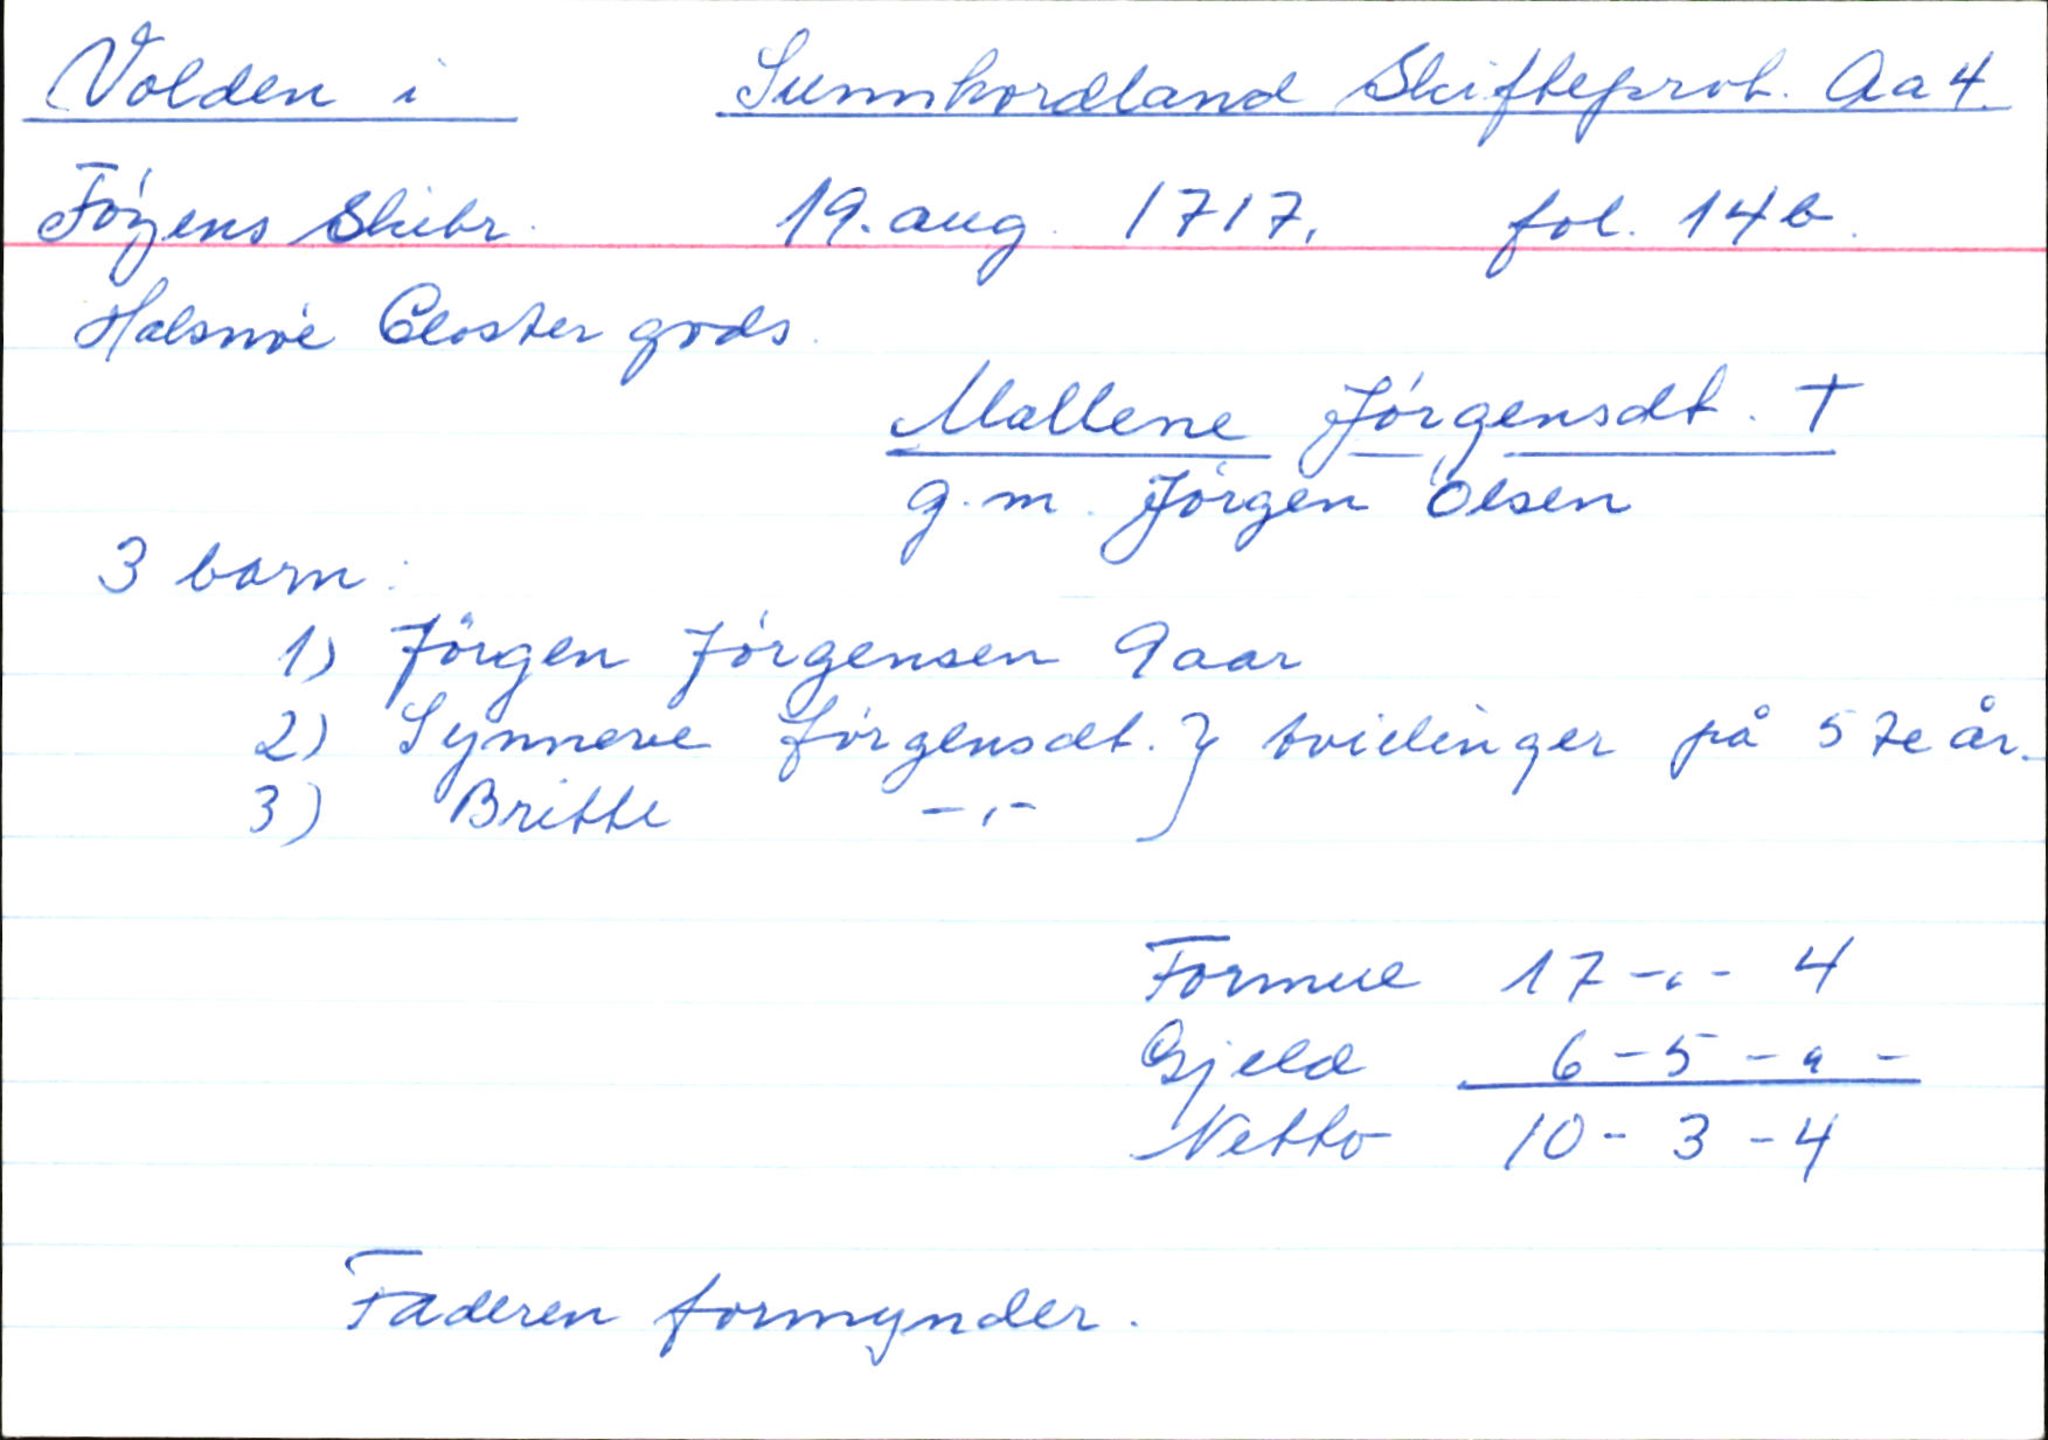 Volden i Sunnhordland Skifteprot. Aa 4.
Föyens Skibr. 19. aug. 1717, fol. 14b.
Halsnöe Closter gods.
Mallene Jörgensdt. †
g.m. Jörgen Olsen
3 barn:
1) Jörgen Jörgensen 9 aar
2) Synneve Jörgensdt. } tvielinger på 5te år.
3) Britte -,,-
Formue 17 -,- 4
Gjeld 6 - 5 - " -
Netto 10 - 3 - 4
Faderen formynder.